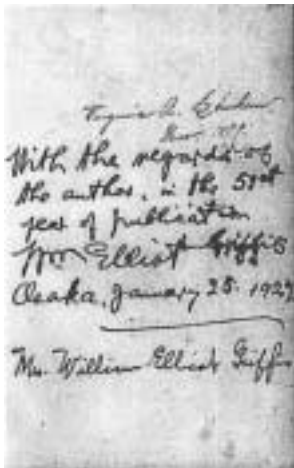 With the regards of
the author, in the 51st
year of publication
Wm Elliot Griffis
Osaka, January 25. 1927
Mrs. William Elliot Griffis